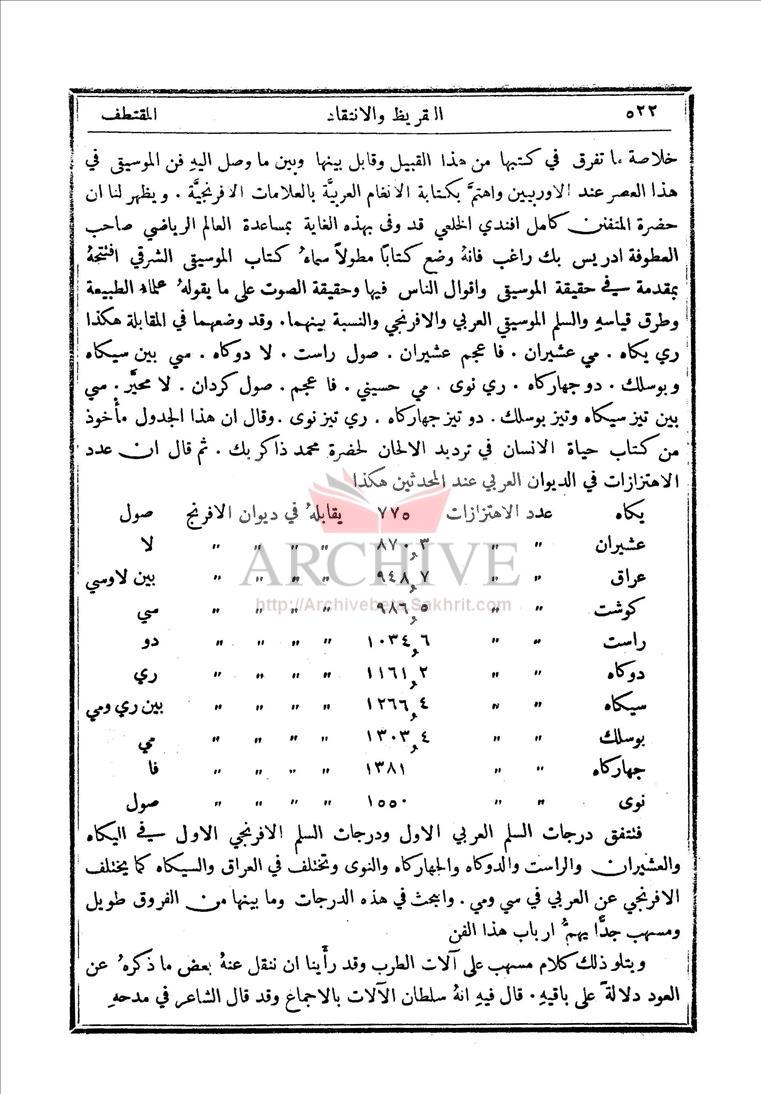 ٥٢٢ القريظ والانتقاد المقتطف
خلاصة ما تفرق في كتبها من هذا القبيل وقابل بينها وبين ما وصل اليهِ فن الموسيقى في
هذا العصر عند الاوربيين واهتمَّ بكتابة الانغام العربيَّة بالعلامات الافرنجيَّة . ويظهر لنا ان
حضرة المتفنن كامل افندي الخلعي قد وفى بهذه الغاية بمساعدة العالم الرياضي صاحب
العطوفة ادريس بك راغب فانهُ وضع كتابًا مطولاً سماهُ كتاب الموسيقى الشرقي افتتحهُ
بمقدمة في حقيقة الموسيقى واقوال الناس فيها وحقيقة الصوت على ما يقولهُ علماءُ الطبيعة
وطرق قياسهِ والسلم الموسيقي العربي والافرنجي والنسبة بينهما. وقد وضعهما في المقابلة هكذا
ري يكاه . مي عشيران . فا عجم عشيران . صول راست . لا دوكاه . سي بين سيكاه
وبوسلك . دو جهاركاه . ري نوى . مي حسيني . فا عجم . صول كردان . لا محيَّر . سي
بين تيز سيكاه وتيز بوسلك . دو تيز جهاركاه . ري تيز نوى . وقال ان هذا الجدول مأخوذ
من كتاب حياة الانسان في ترديد الالحان لحضرة محمد ذاكر بك . ثم قال ان عدد
الاهتزازات في الديوان العربي عند المحدثين هكذا
يكاه عدد الاهتزازات ٧٧٥ يقابلهُ في ديوان الافرنج صول
عشيران " " ٨٧٠,٣ " " " " لا
عراق " " ٩٤٨,٧ " " " " بين لا وسي
كوشت " " ٩٨٦,٥ " " " " سي
راست " " ١٠٣٤,٦ " " " " دو
دوكاه " " ١١٦١,٢ " " " " ري
سيكاه " " ١٢٦٦,٤ " " " " بين ري ومي
بوسلك " " ١٣٠٣,٤ " " " " مي
جهاركاه " " ١٣٨١ " " " " فا
نوى " " ١٥٥٠ " " " " صول
فتتفق درجات السلم العربي الاول ودرجات السلم الافرنجي الاول في اليكاه
والعشيران والراست والدوكاه والجهاركاه والنوى وتختلف في العراق والسيكاه كما يختلف
الافرنجي عن العربي في سي ومي . والبحث في هذه الدرجات وما بينها من الفروق طويل
ومسهب جدًّا يهمُّ ارباب هذا الفن
ويتلو ذلك كلام مسهب على آلات الطرب وقد رأينا ان ننقل عنهُ بعض ما ذكرهُ عن
العود دلالةً على باقيهِ . قال فيهِ انهُ سلطان الآلات بالاجماع وقد قال الشاعر في مدحهِ
ARCHIVE
http://Archivebeta.Sakhrit.com